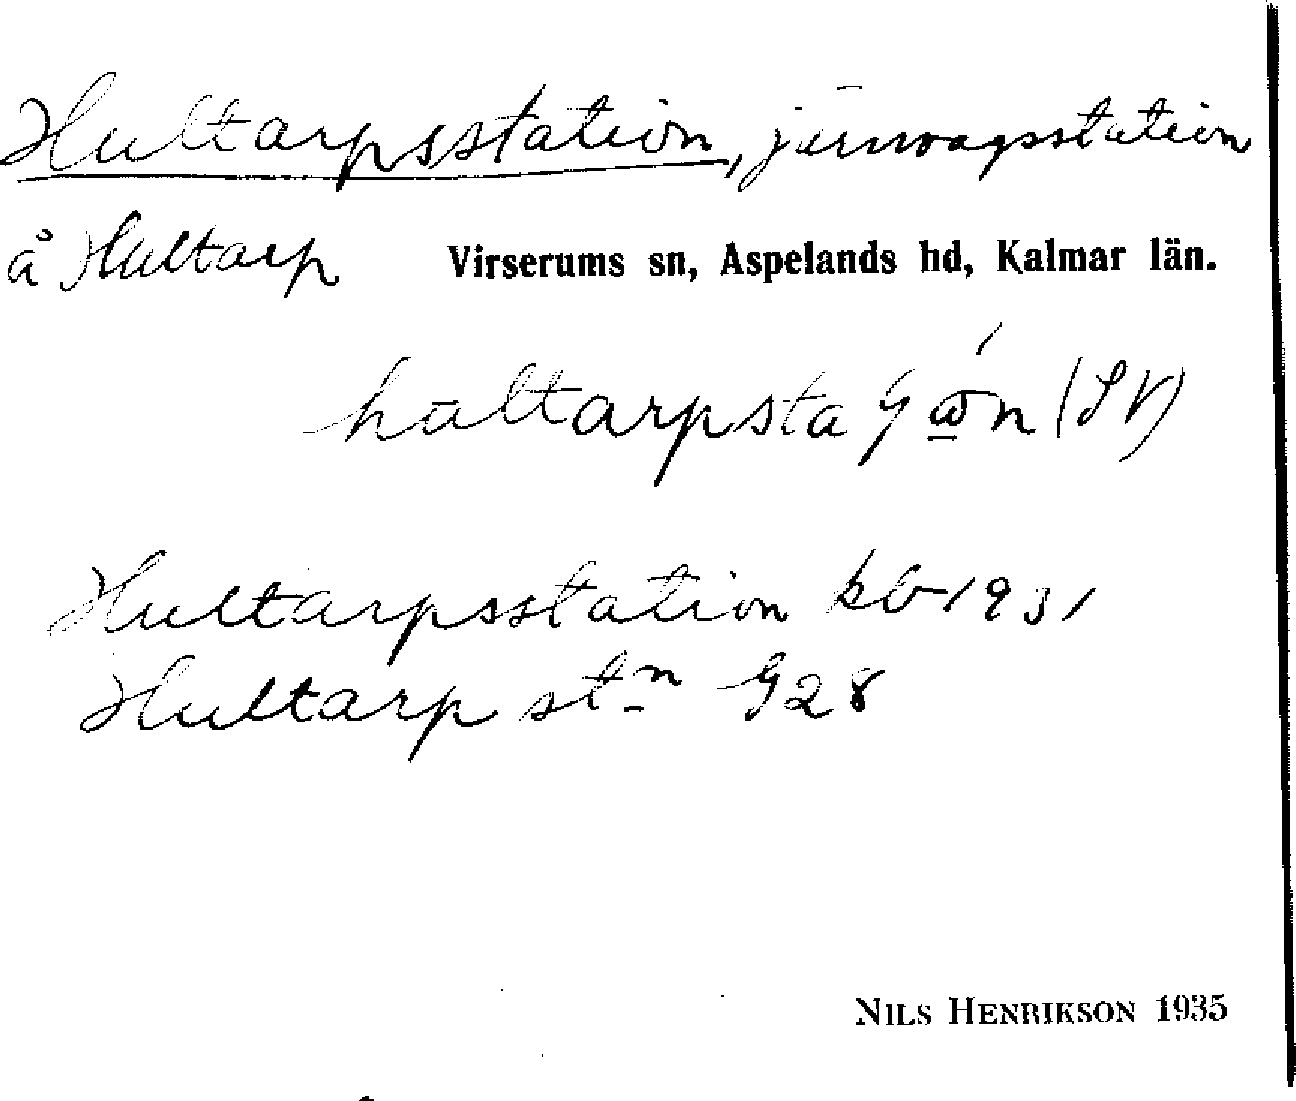 Hultarpsstation, järnvagsstation
å Hultarp Virserums sn, Aspelands hd, Kalmar län.
(SV)
Hultarpsstation kb 1931
Hultarp stn G28
NILS HENRIKSON 1935